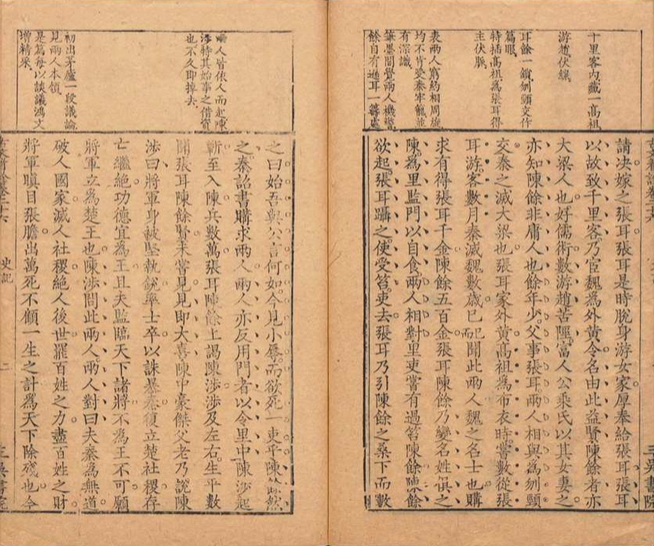 十里客內藏一高祖
游趙伏脈
耳餘一鎖刎頸支作
篇眼
特插高祖爲張耳得
主伏脈
表兩人窮約相周旋
均不肯受秦牢籠並
有深識
筆墨間覺兩人機警
餘自有遜耳一籌處
請決嫁之張耳張耳是時脫身游女家厚奉給張耳張耳
以故致千里客乃宦魏爲外黃令名由此益賢陳餘者亦
大梁人也好儒術數游趙苦陘富人公乘氏以其女妻之
亦知陳餘非庸人也餘年少父事張耳兩人相與爲刎頸
交秦之滅大梁也張耳家外黃高祖爲布衣時嘗數從張
耳游客數月秦滅魏數歲已而聞此兩人魏之名士也購
求有得張耳千金陳餘五百金張耳陳餘乃變名姓俱之
陳爲里監門以自食兩人相對里吏嘗有過笞陳餘陳餘
欲起張耳躡之使受笞吏去張耳乃引陳餘之桑下而數
兩人皆依人而起陳
涉特其始事之借資
也不久即掉去
初出茅廬一段議論
見兩人本領
是篇每以談議鴻文
增精采
之曰始吾與公言何如今見小辱而欲死一吏乎陳餘然
之秦詔書購求兩人兩人亦反用門者以令里中陳涉起
蘄至入陳兵數萬張耳陳餘上謁陳涉涉及左右生平數
聞張耳陳餘賢未嘗見見即大喜陳中豪傑父老乃說陳
涉曰將軍身被堅執銳率士卒以誅暴秦復立楚社稷存
亡繼絕功德宜爲王且夫監臨天下諸將不爲王不可願
將軍立爲楚王也陳涉問此兩人兩人對曰夫秦爲無道
破人國家滅人社稷絕人後世罷百姓之力盡百姓之財
將軍瞋目張膽出萬死不顧一生之計爲天下除殘也今
史記
二